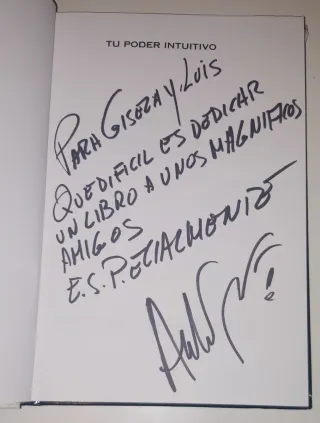 TU PODER INTUITIVO
PARA GISEZA Y LUIS
QUE DIFICIL ES DEDICAR
UN LIBRO A UNOS MAGNIFICOS
AMIGOS
E.S.P.ECIALMENTE